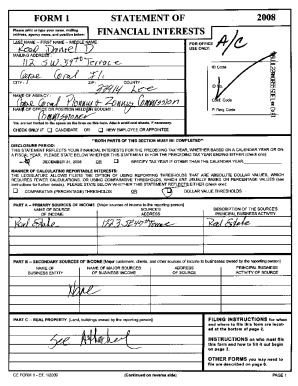 FORM 1 STATEMENT OF 2008
Please print or type your name, mailing address, agency name, and position below: FINANCIAL INTERESTS
LAST NAME -- FIRST NAME -- MIDDLE NAME FOR OFFICE USE ONLY: A/C
Read Daniel D
MAILING ADDRESS
112 S.W. 39th Terrace
Cape Coral Fl.
CITY : ZIP : COUNTY : ID Code
33914 Lee
NAME OF AGENCY : ID No.
Cape Coral Planning & Zoning Commission
NAME OF OFFICE OR POSITION HELD OR SOUGHT : Conf. Code
Commissioner P. Req. Code
You are not limited to the space on the lines on this form. Attach additional sheets, if necessary.
CHECK ONLY IF CANDIDATE OR NEW EMPLOYEE OR APPOINTEE
**BOTH PARTS OF THIS SECTION MUST BE COMPLETED**
DISCLOSURE PERIOD:
THIS STATEMENT REFLECTS YOUR FINANCIAL INTERESTS FOR THE PRECEDING TAX YEAR, WHETHER BASED ON A CALENDAR YEAR OR ON A FISCAL YEAR. PLEASE STATE BELOW WHETHER THIS STATEMENT IS FOR THE PRECEDING TAX YEAR ENDING EITHER (check one):
DECEMBER 31, 2008 OR SPECIFY TAX YEAR IF OTHER THAN THE CALENDAR YEAR:
MANNER OF CALCULATING REPORTABLE INTERESTS:
THE LEGISLATURE ALLOWS FILERS THE OPTION OF USING REPORTING THRESHOLDS THAT ARE ABSOLUTE DOLLAR VALUES, WHICH REQUIRES FEWER CALCULATIONS, OR USING COMPARATIVE THRESHOLDS, WHICH ARE USUALLY BASED ON PERCENTAGE VALUES (see instructions for further details). PLEASE STATE BELOW WHETHER THIS STATEMENT REFLECTS EITHER (check one):
COMPARATIVE (PERCENTAGE) THRESHOLDS OR DOLLAR VALUE THRESHOLDS
PART A -- PRIMARY SOURCES OF INCOME [Major sources of income to the reporting person]
NAME OF SOURCE OF INCOME SOURCE'S ADDRESS DESCRIPTION OF THE SOURCE'S PRINCIPAL BUSINESS ACTIVITY
Real Estate Real Estate
PART B -- SECONDARY SOURCES OF INCOME [Major customers, clients, and other sources of income to businesses owned by the reporting person]
NAME OF BUSINESS ENTITY NAME OF MAJOR SOURCES OF BUSINESS' INCOME ADDRESS OF SOURCE PRINCIPAL BUSINESS ACTIVITY OF SOURCE
None
PART C -- REAL PROPERTY [Land, buildings owned by the reporting person]
See Attached
FILING INSTRUCTIONS for when and where to file this form are located at the bottom of page 2.
INSTRUCTIONS on who must file this form and how to fill it out begin on page 3.
OTHER FORMS you may need to file are described on page 6.
CE FORM 1 - Eff. 1/2009 (Continued on reverse side) PAGE 1